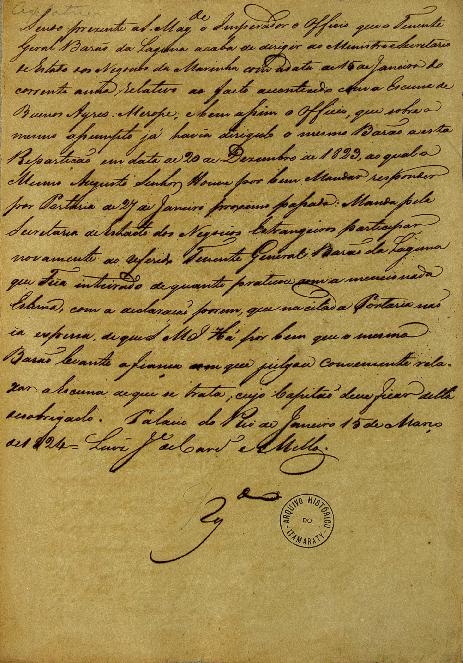 Sendo prezente a S. Mag.de o Imperador o Officio que o Tenente
Geral Barão da Laguna acaba de dirigir ao Ministro e Secretario
de Estado dos Negocios da Marinha com data de 15 de Janeiro do
corrente anno, relativo ao facto acontecido com a Escuna de
Buenos Ayres Merope, e bem assim o Officio, que sobre o
mesmo assumpto já havia dirigido o mesmo Barão a esta
Repartição em data de 20 de Dezembro de 1823, ao qual o
Mesmo Augusto Senhor Houve por bem Mandar responder
por Portaria de 27 de Janeiro proximo passado: Manda pela
Secretaria de Estado dos Negocios Estrangeiros participar
novamente ao referido Tenente General Barão da Laguna
que Fica inteirado de quanto praticou com a mencionada
Escuna, com a declaração porem, que na citada Portaria não
ia expressa, de que S. M. I. Há por bem que o mesmo
Barão levante a fiança com que julgou conveniente rela-
xar a Escuna de que se trata, cujo Capitão deve ficar della
desobrigado. Palacio do Rio de Janeiro 15 de Março
de 1824 = Luiz J.e de Carv.o e Mello.
ARQUIVO HISTÓRICO
DO
ITAMARATY